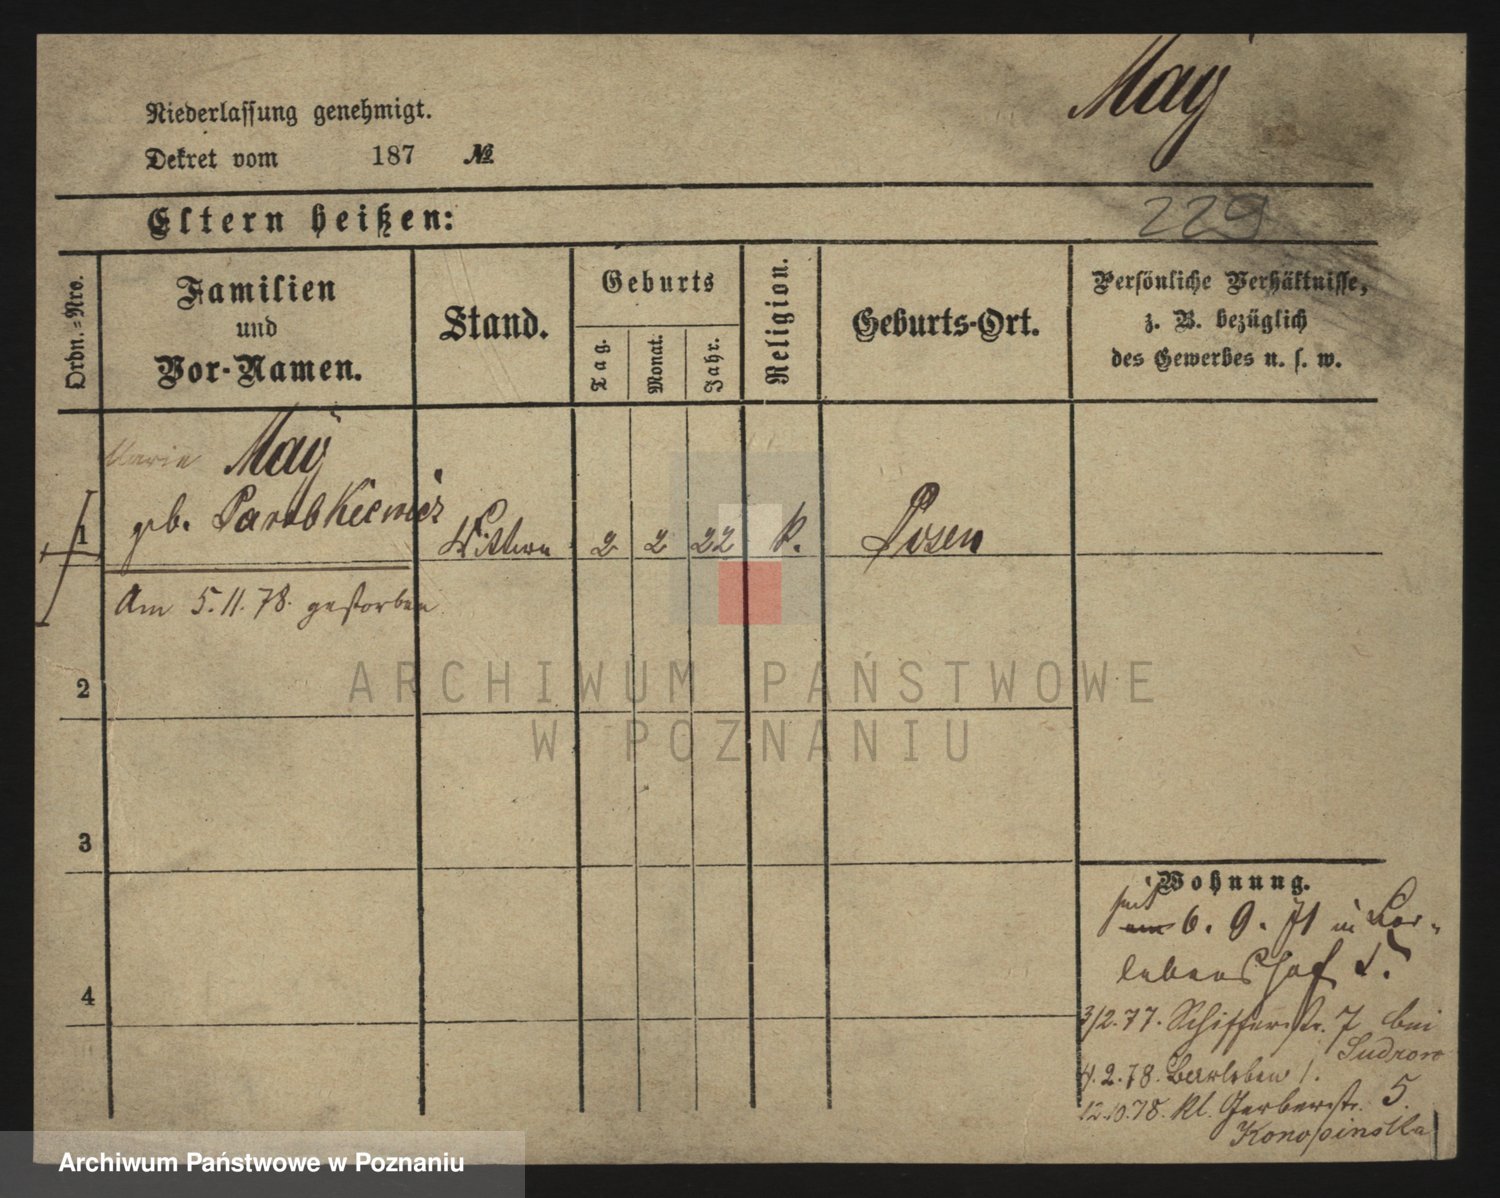 Maÿ
Niederlassung genehmigt.
Dekret vom 187 №
229
Eltern heißen:
Ordn.=Nro.
Familien
und
Vor-Namen.
Stand.
Geburts
Tag.
Monat.
Jahr.
Religion.
Geburts-Ort.
Persönliche Verhältnisse,
z. B. bezüglich
des Gewerbes u. s. w.
Marie Maÿ
geb. Parobkiewicz
1 Wittwe 2 2 22 k. Posen
Am 5.11.78. gestorben
2
3
4
Wohnung.
seit
am 6. 9. 71 in Ber-
lebenshof
3/2.77. Schifferstr. 7 bei
4.2.78. Berleben 1.
12.10.78. Kl. Gerberstr. 5.
Konopinska
ARCHIWUM PAŃSTWOWE
W POZNANIU
Archiwum Państwowe w Poznaniu